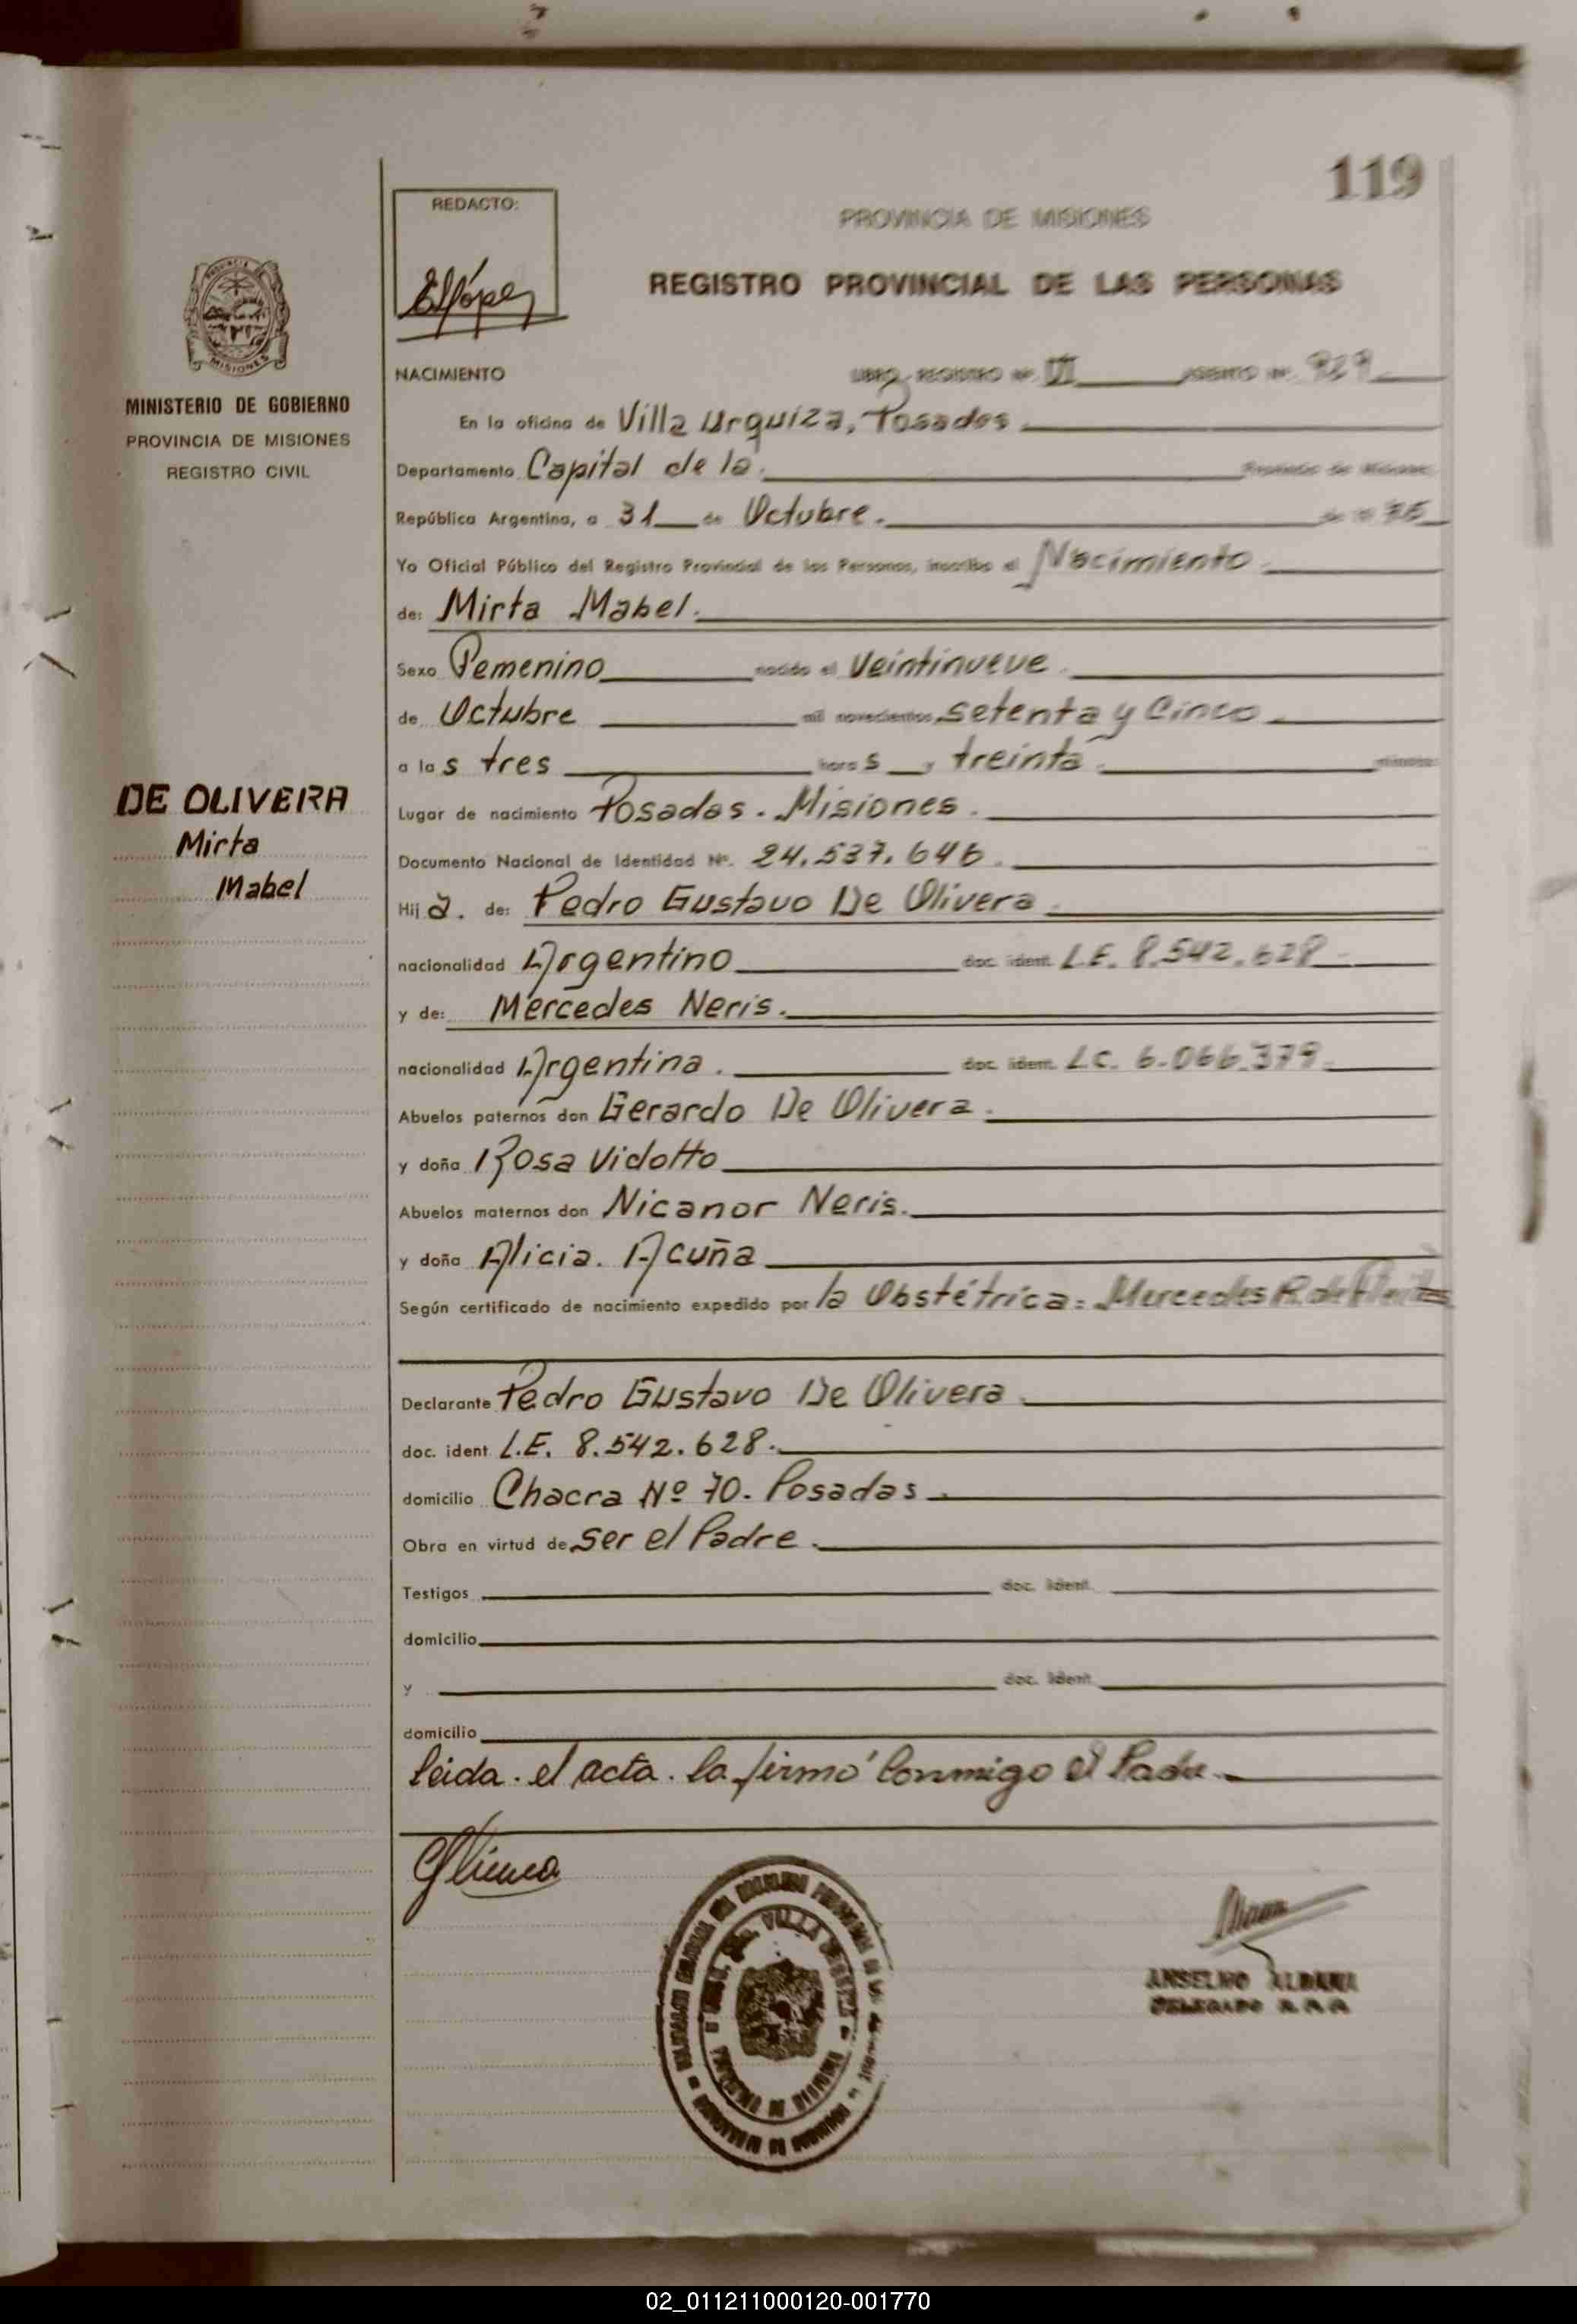 119
REDACTO:
PROVINCIA DE MISIONES
ELópez
REGISTRO PROVINCIAL DE LAS PERSONAS
MISIONES
NACIMIENTO LIBRO REGISTRO Nº VII ASIENTO Nº
MINISTERIO DE GOBIERNO
PROVINCIA DE MISIONES
REGISTRO CIVIL
En la oficina de Villa Urquiza, Posadas
Departamento Capital de la. Provincia de Misiones
República Argentina, a 31 de Octubre. de 19
Yo Oficial Público del Registro Provincial de las Personas, inscribo el Nacimiento
de: Mirta Mabel.
Sexo Femenino nacido el Veintinueve.
de Octubre mil novecientos setenta y Cinco
a las tres horas y treinta. minutos
DE OLIVERA
Mirta
Mabel
Lugar de nacimiento Posadas. Misiones.
Documento Nacional de Identidad Nº. 24.537.646.
Hija. de: Pedro Gustavo De Olivera
nacionalidad Argentino doc. ident. L.E. 8.542.628
y de: Mercedes Neris.
nacionalidad Argentina. doc. ident. L.C. 6.066.379
Abuelos paternos don Gerardo De Olivera.
y doña Rosa Vidotto
Abuelos maternos don Nicanor Neris.
y doña Alicia. Acuña
Según certificado de nacimiento expedido por la Obstétrica: Mercedes R. de Fleitas
Declarante Pedro Gustavo De Olivera
doc. ident L.E. 8.542.628.
domicilio Chacra Nº 70. Posadas
Obra en virtud de ser el Padre.
Testigos doc. ident.
domicilio
y doc. ident
domicilio
leida. el acta. la firmó conmigo el Padre
VILLA URQUIZA
ANSELMO ALDANA
DELEGADO
02_011211000120-001770